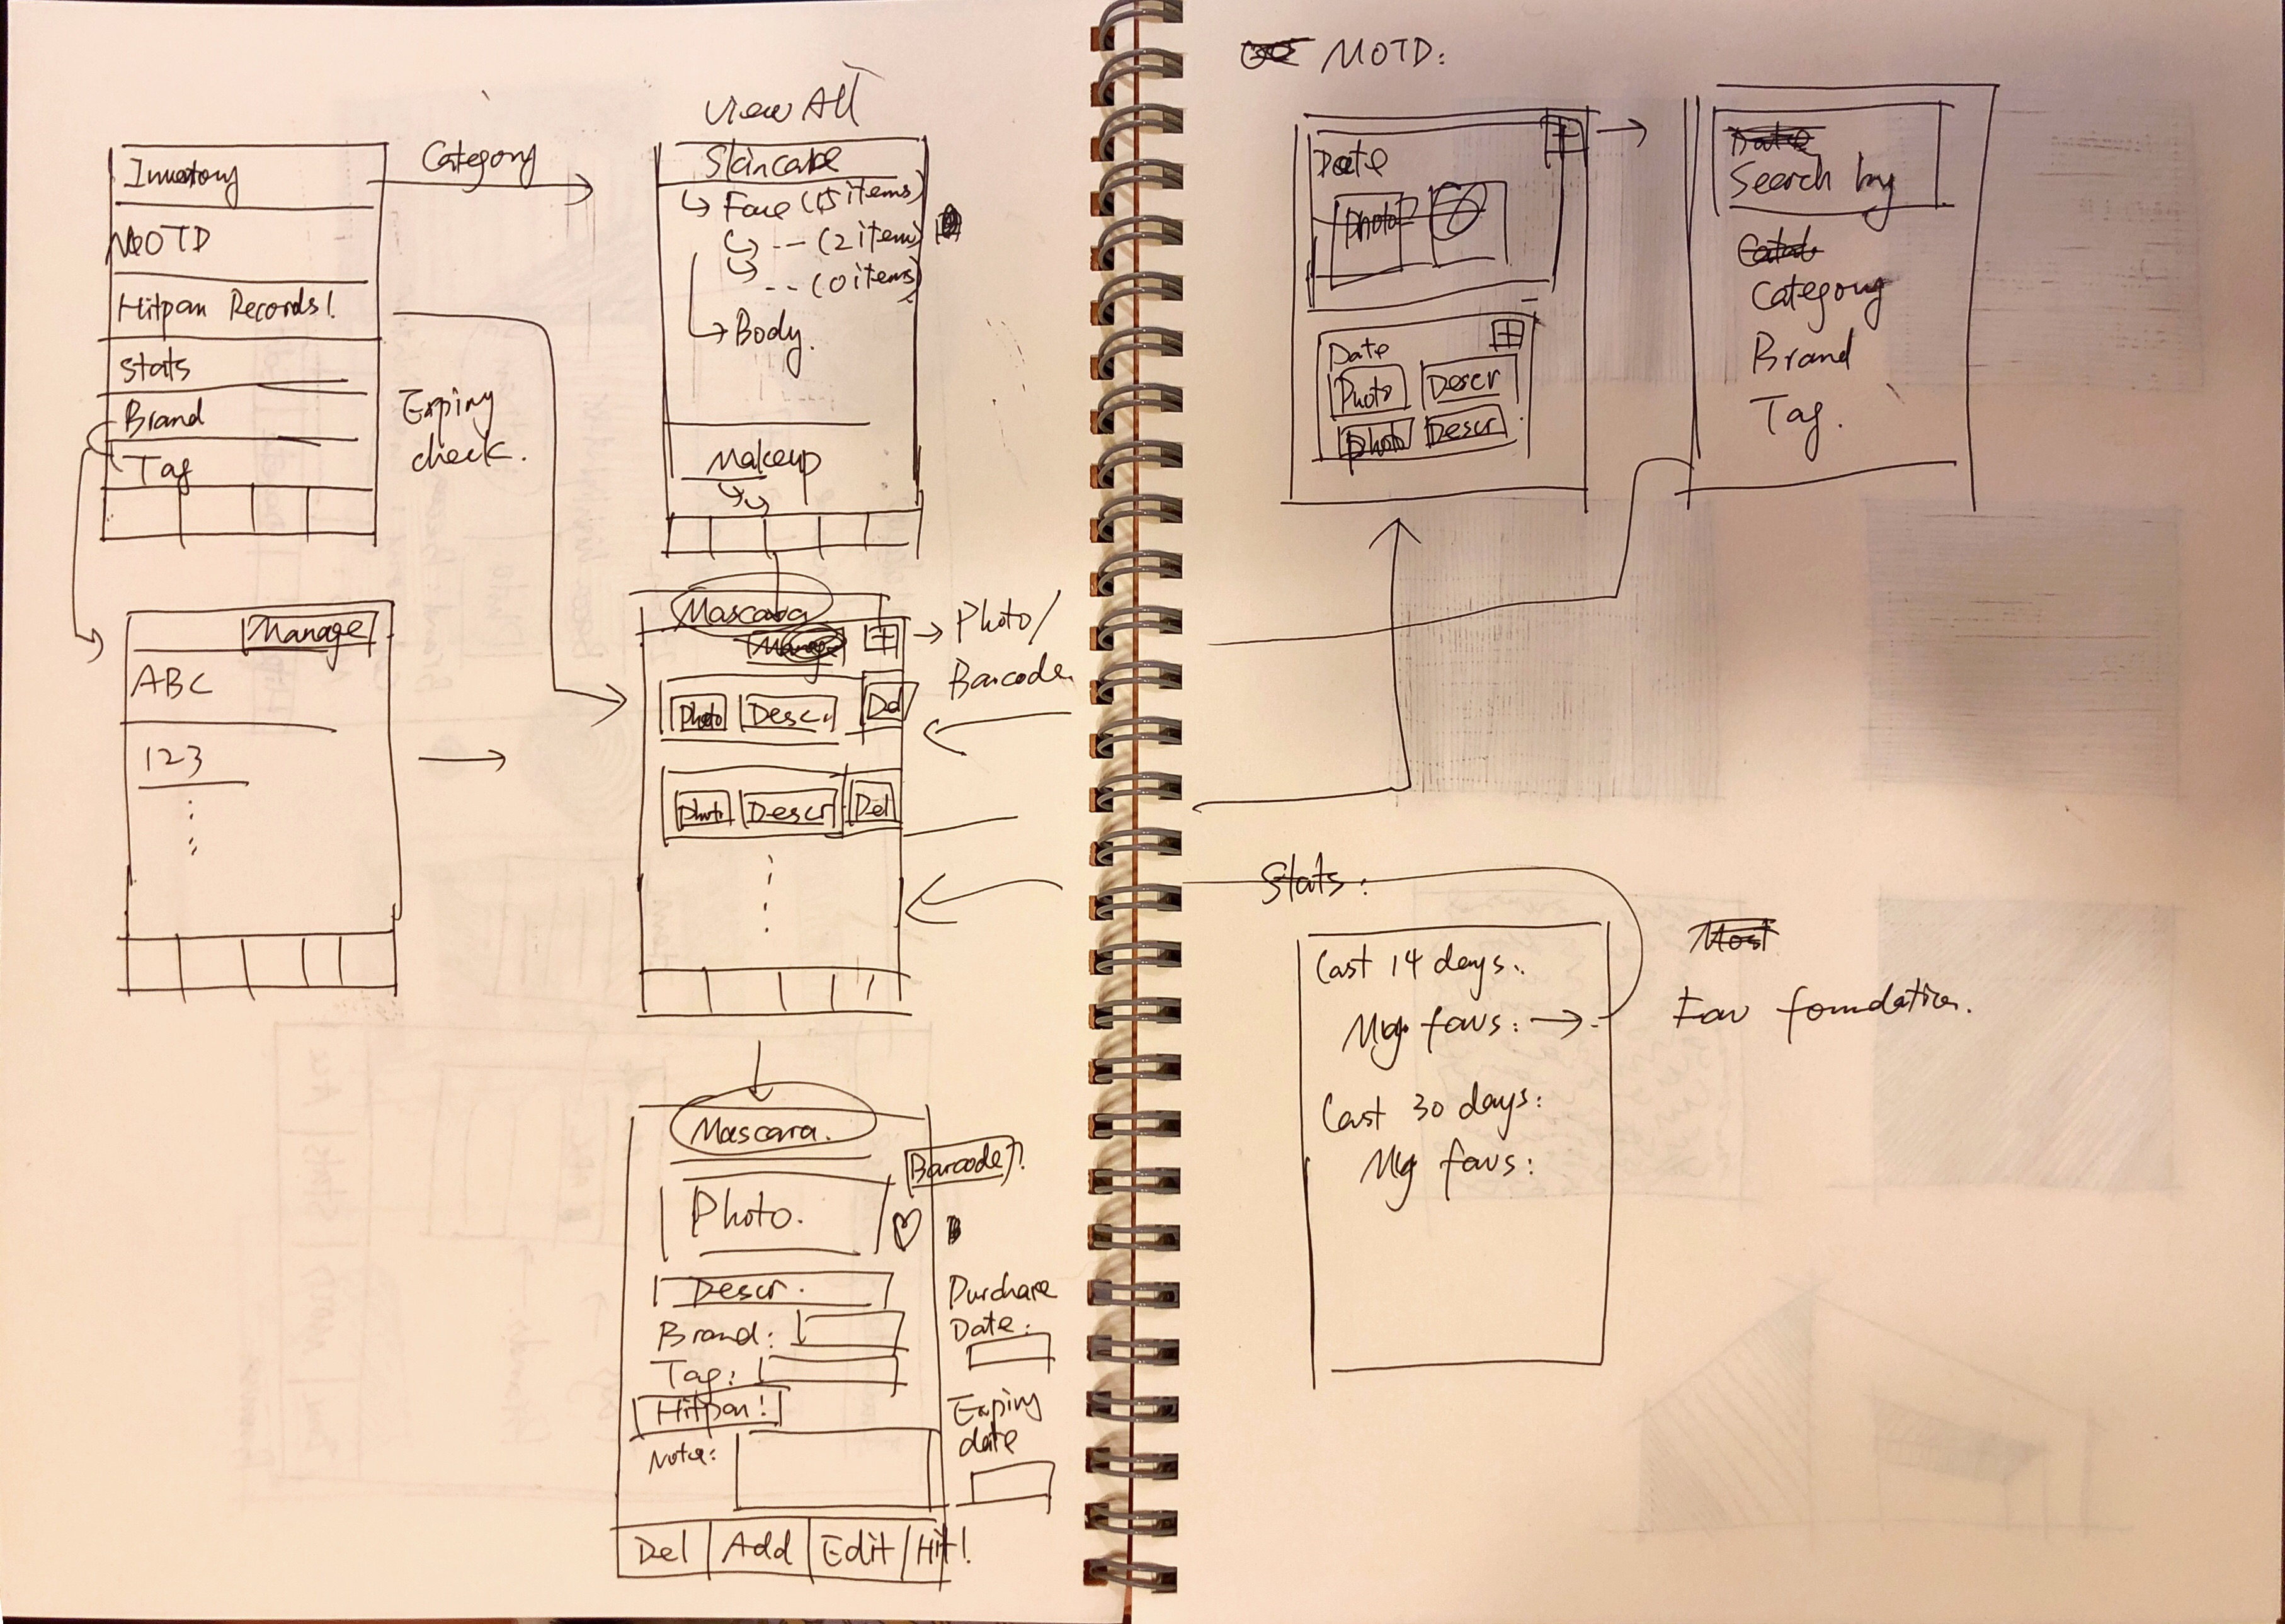 View All
Inventory
MOTD
Hitpan Records!
Stats
Brand
Tag
Category
Expiry
check.
Skincare
Face (15 items)
-- (2 item)
-- (0 items)
Body.
Makeup
Manage
ABC
123
Mascara
Manage
+
Photo/
Barcode
Photo Descr. Del
Photo Descr Del
Mascara.
Barcode
Photo.
Descr.
Brand:
Tag:
Hitpan!
Note:
Purchase
Date:
Expiry
date
Del Add Edit Hit!
MOTD:
Date +
Photo
Date +
Photo Descr
Photo Descr
Date
Search by
Category
Brand
Tag.
Stats:
Last 14 days:
My favs:
Last 30 days:
My favs:
Most
Fav foundation.